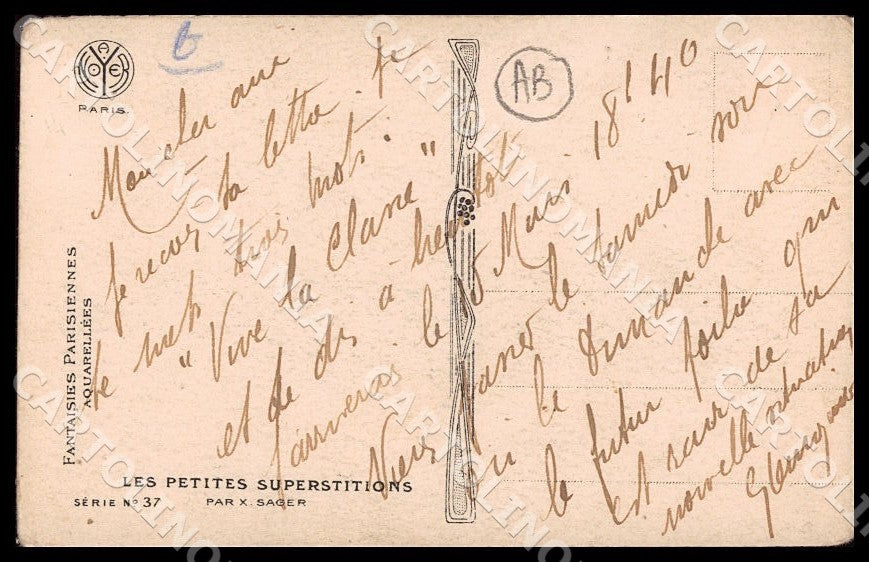 NOYER
PARIS
6
AB
FANTAISIES PARISIENNES
AQUARELLÉES
Mon cher ami
Je reçois ta lettre. Je
te mets trois mots.
"Vive la Classe"
et je dis à bientôt
J'arriverai le 8 Mars 18h40
Viens passer le samedi soir
ou le Dimanche avec
le futur poilu qui
est ravi de sa
nouvelle situation
LES PETITES SUPERSTITIONS
SÉRIE No 37
PAR X. SAGER
CARTOLINOMANIA